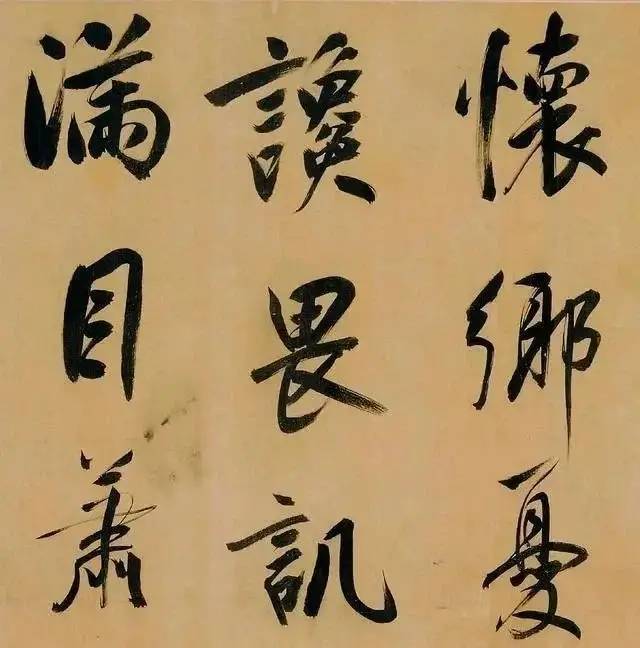 懷鄉憂
讒畏訊
滿目蕭